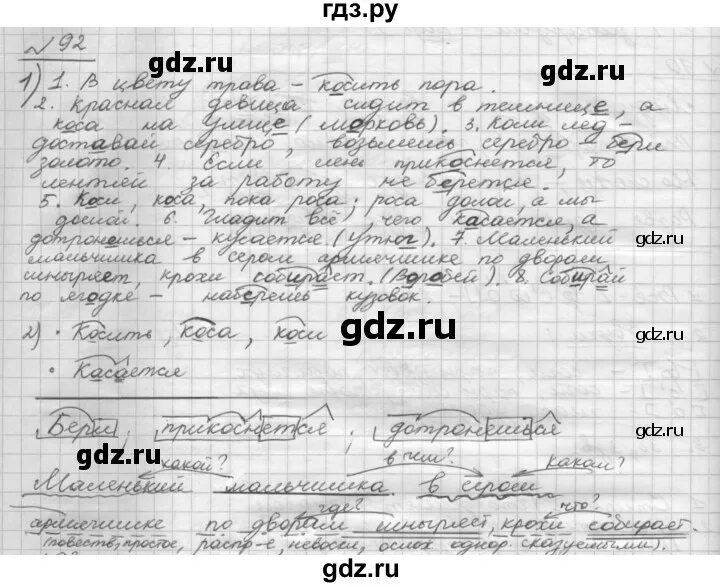 гдз.ру
№ 92
1) 1. В цвету трава – косить пора.
2. Красная девица сидит в темнице, а
коса на улице (морковь). 3. Коли лёд -
доставай серебро, возьмёшь серебро – бери
золото. 4. Если лень прикоснется, то
за работу не берется.
5. Коси, коса, пока роса; роса долой, а мы
домой. 6. Гладит всё, чего касается, а
дотронешься – кусается (утюг). 7. Маленький
мальчишка в сером армячишке по дворам
шныряет, крохи собирает. (Воробей). 8. Собирай
по ягодке – наберешь кузовок.
2) • Косить, коса, коси
• Касается
Бери; прикоснется; дотронешься
какой? в чем? каком?
Маленький мальчишка в сером
где? что?
армячишке по дворам шныряет, крохи собирает.
(повеств, простое, распр-е, невоскл, ослож. однор. сказуемыми).
gdz.ru
gdz.ru
gdz.ru
gdz.ru
gdz.ru
gdz.ru
gdz.ru